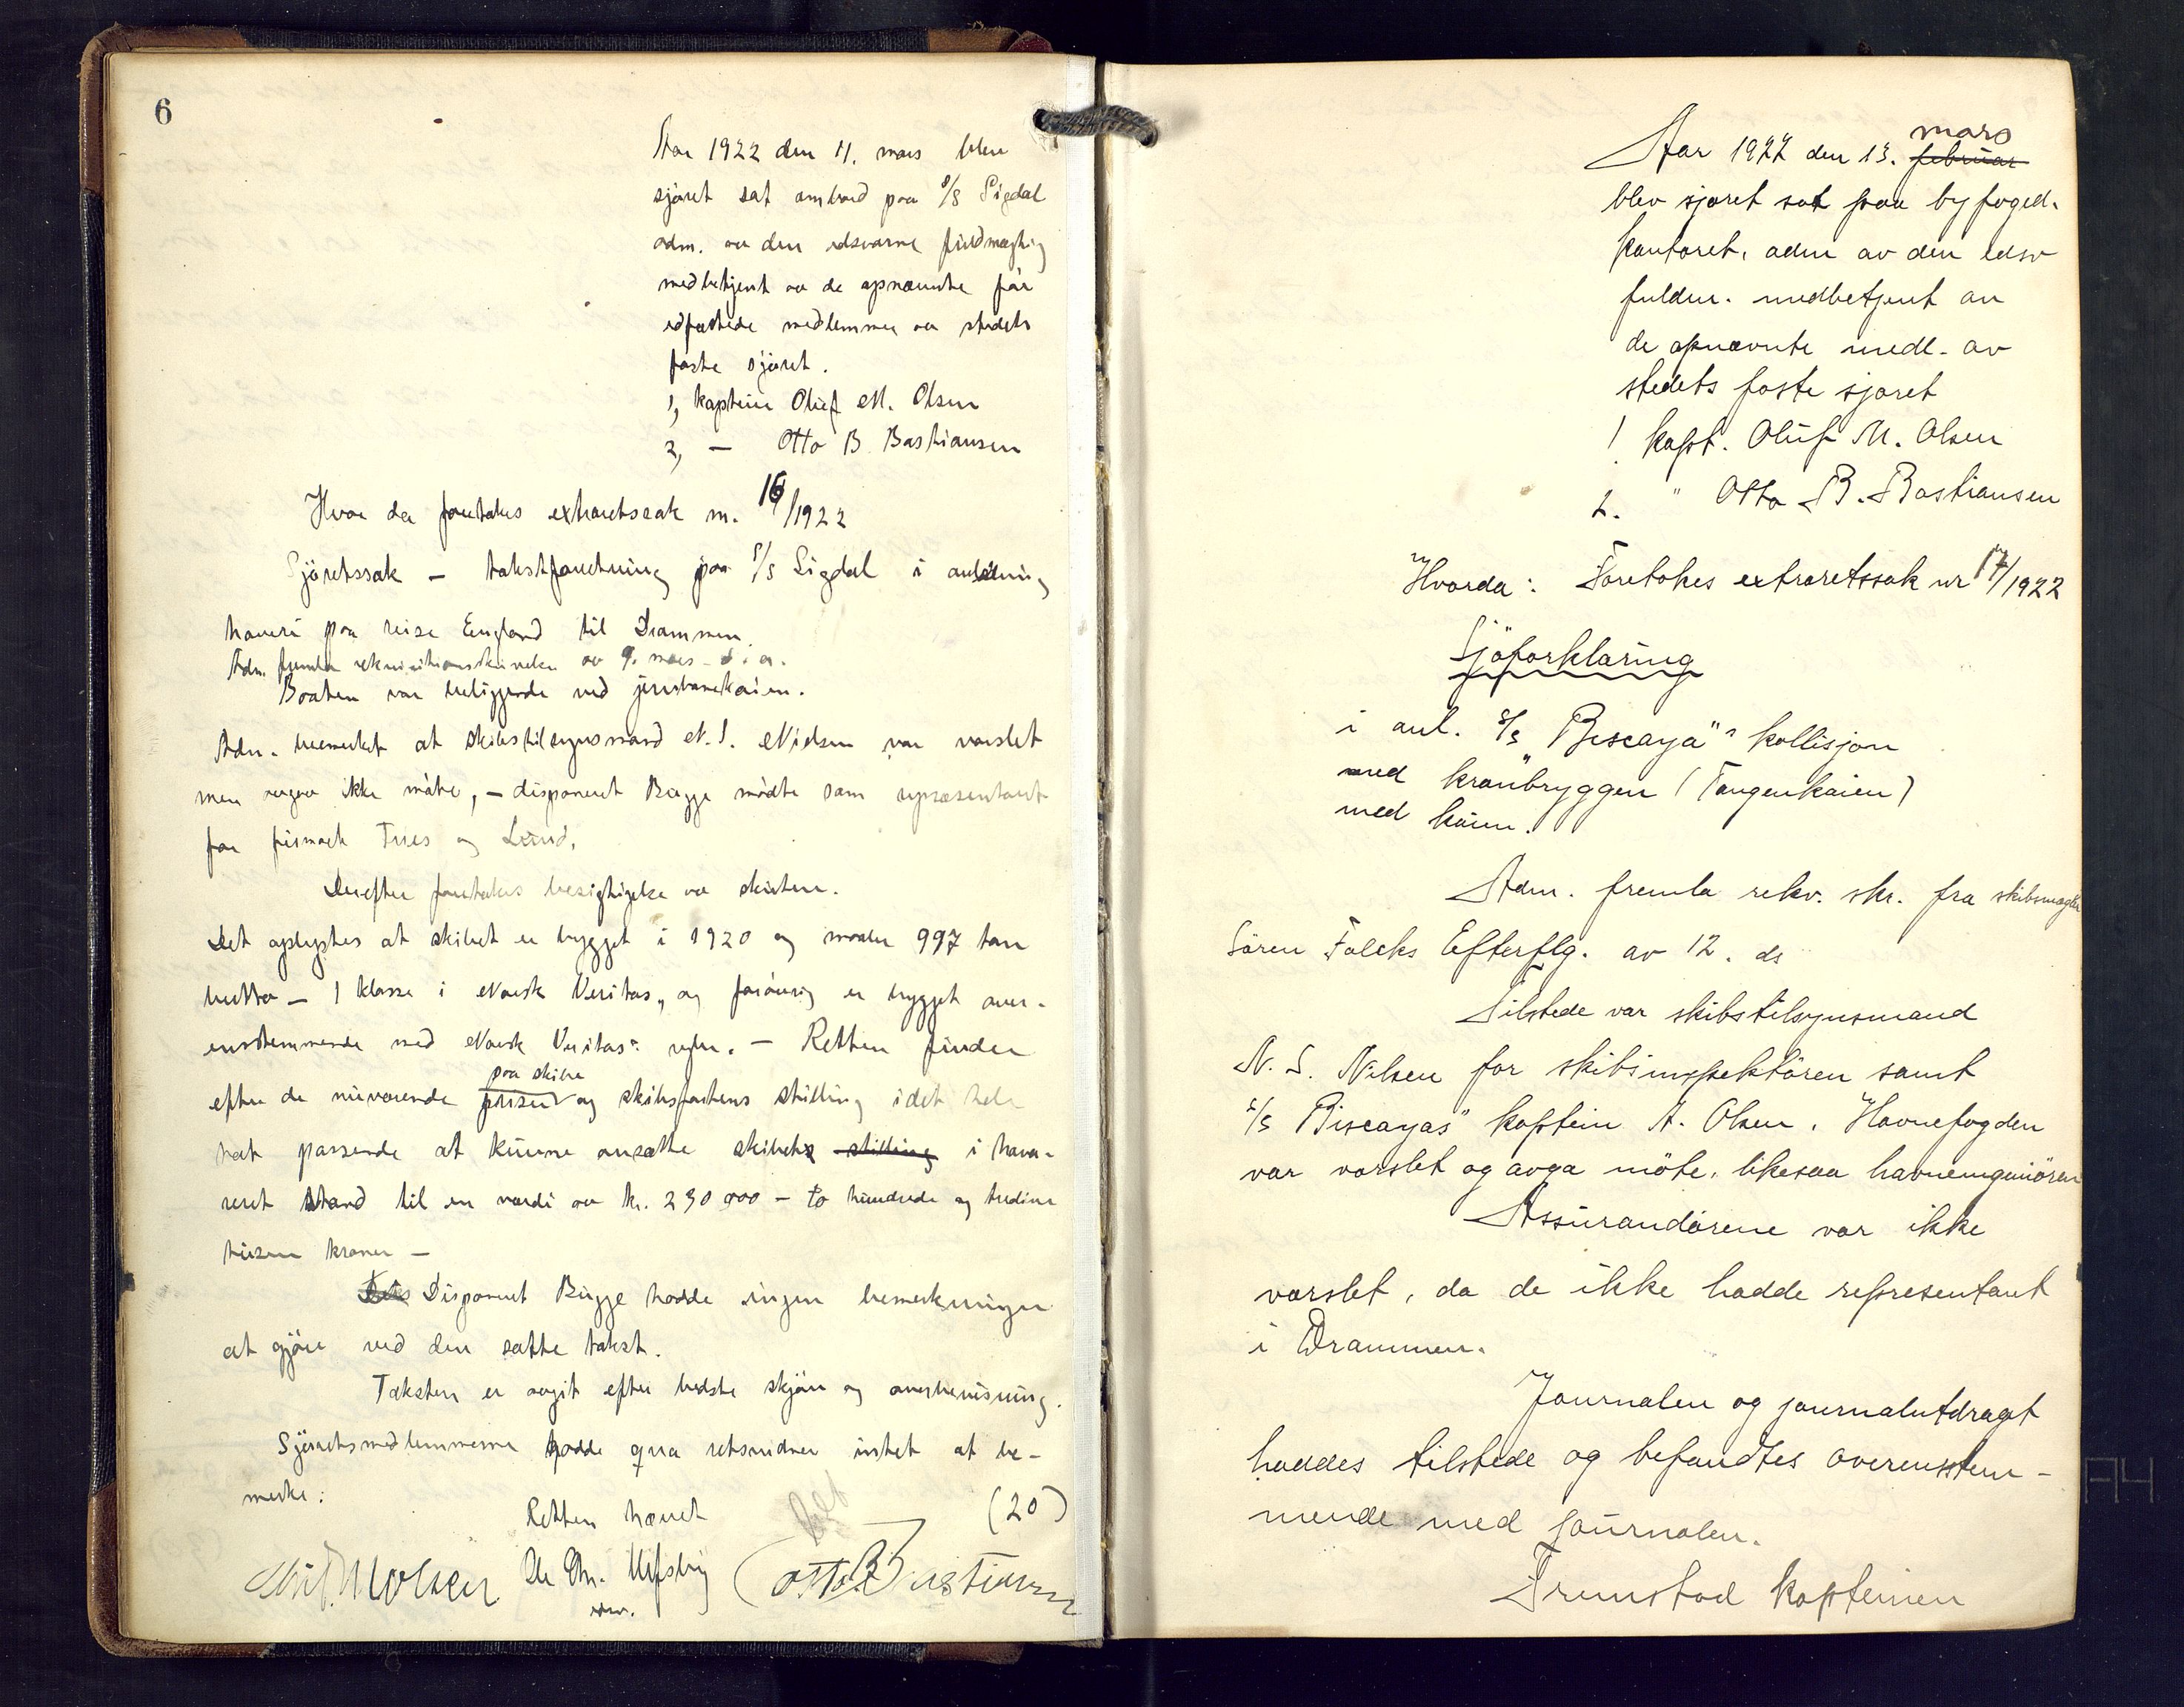 6
Aar 1922 den 11. mars blev
sjøret sat ombord paa S/S Sigdal
adm. av den edsvorne fuldmægtig
medbetjent av de opnævnte før
edfæstede medlemmer av stedets
faste sjøret.
1, kaptein Oluf M. Olsen
2, — Otto B Bastiansen
Hvor da foretokes extraretssak nr. 16/1922
Sjøretssak — takstforretning paa S/S Sigdal i anledning
haveri paa reise England til Drammen.
Adm. fremla rekvisitionsskrivelse av 9. mars d. a.
Baaten var beliggende ved jernbanekaien.
Adm. bemerket at skibstilsynsmand N. S. Nielsen var varslet
men avgav ikke møte, — disponent Bugge mødte som repræsentant
for firmaet Fries og Lund.
Derefter foretokes besigtigelse av skuten.
Det oplystes at skibet er bygget i 1920 og maaler 997 ton
brutto — 1 klasse i Norsk Veritas, og forøvrig er bygget over-
ensstemmende med Norsk Veritas: regler. — Retten finder
paa skibe
efter de nuværende priser og skibsfartens stilling i det hele
tat passende at kunne ansætte skibets stilling i hava-
reret stand til en værdi av kr. 230,000 — to hundrede og tredive
tusen kroner —
Disponent Bugge hadde ingen bemerkninger
at gjøre ved den satte takst.
Taksten er avgit efter bedste skjøn og overbevisning.
Sjøretsmedlemmerne hadde qua retsvidner intet at be-
merke:
Retten hævet
(20)
Oluf M Olsen
Otto B Bastiansen
Aar 1922 den 13. februar mars
blev sjøret sat paa byfoged-
kontoret, adm av den edsv
fuldm. medbetjent av
de opnævnte medl. av
stedets faste sjøret
1 kapt. Oluf M. Olsen
2. " Otto B. Bastiansen
Hvorda: Foretokes extraretssak nr 17/1922
Sjøforklaring
i anl. S/S "Biscaya"s kollisjon
med kranbryggen (Tangenkaien)
med kaien.
Adm. fremla rekv. skr. fra skibsmægler
Sören Falcks Efterflg. av 12. ds
Tilstede var skibstilsynsmand
N. S. Nilsen for skibsinspektören samt
S/S "Biscayas" kaptein A. Olsen. Havnefogden
var varslet og avga möte, likesaa havneingeniören
Assurandörene var ikke
varslet, da de ikke hadde representant
i Drammen.
Journalen og journalutdraget
haddes tilstede og befandtes overensstem-
mende med journalen.
Fremstod kapteinen